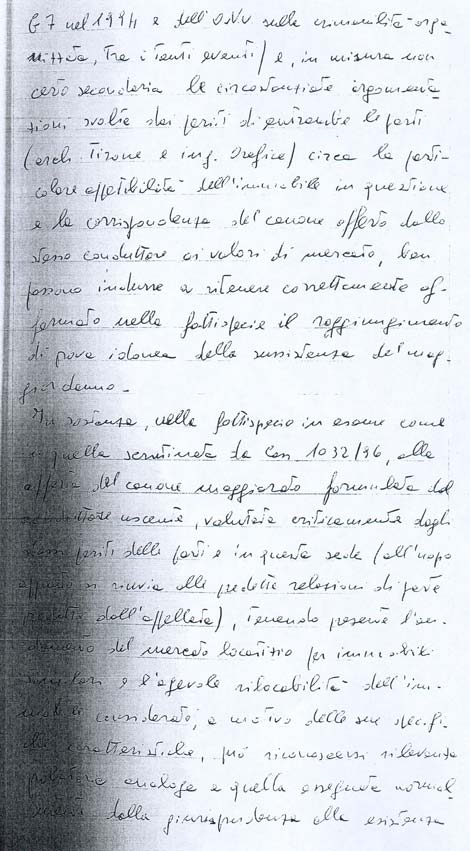 G7 nel 1994 e dell'ONU sulla criminalità orga-
nizzata, tra i tanti eventi) e, in misura non
certo secondaria le circostanziate argomenta
zioni svolte dai periti di entrambe le parti
(arch. Tirone e ing. Orefice) circa la parti-
colare appetibilità dell'immobile in questione
e la corrispondenza del canone offerto dallo
stesso conduttore ai valori di mercato, ben
possono indurre a ritenere correttamente af-
fermato nella fattispecie il raggiungimento
di prova idonea della sussistenza del mag-
gior danno.
In sostanza, nella fattispecie in esame come
in quella scrutinata da Cass 1032/96, alla
offerta del canone maggiorato formulata dal
conduttore uscente, valutata criticamente dagli
stessi periti delle parti e in questa sede (all'uopo
appunto si rinvia alle predette relazioni di parte
prodotte dall'appellata), tenendo presente l'an-
damento del mercato locatizio per immobili
similari e l'agevole rilocabilità dell'im-
mobile considerato, a motivo delle sue specifi-
che caratteristiche, può riconoscersi rilevanza
probatoria analoga a quella assegnata normal
mente dalla giurisprudenza alla esistenza